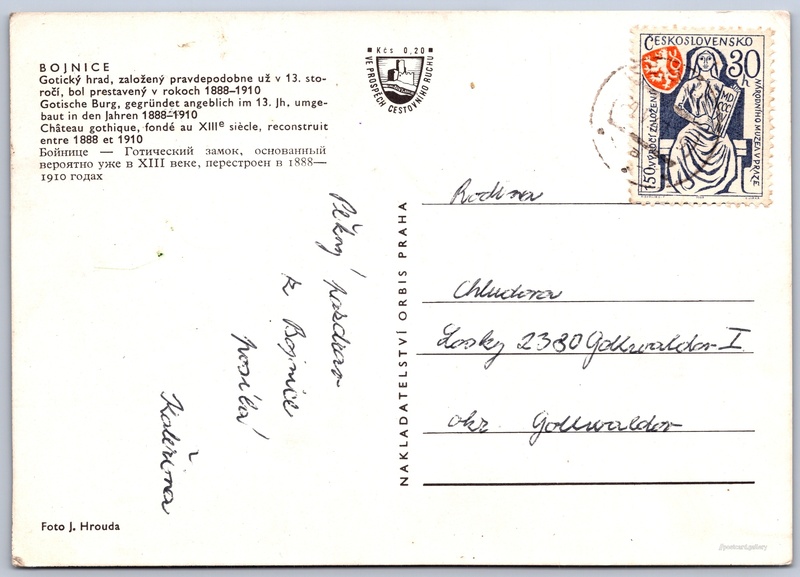 BOJNICE
Gotický hrad, založený pravdepodobne už v 13. sto-
ročí, bol prestavený v rokoch 1888—1910
Gotische Burg, gegründet angeblich im 13. Jh. umge-
baut in den Jahren 1888—1910
Château gothique, fondé au XIIIe siècle, reconstruit
entre 1888 et 1910
Бойнице — Готический замок, основанный
вероятно уже в XIII веке, перестроен в 1888—
1910 годах
Kčs 0,20
VE PROSPĚCH CESTOVNÍHO RUCHU
ČESKOSLOVENSKO
30h
150. VÝROČÍ ZALOŽENÍ
NÁRODNÍHO MUZEA V PRAZE
MDCCCXVIII
Pěkný pozdrav
z Bojnice
posílá
Kateřina
NAKLADATELSTVÍ ORBIS PRAHA
Rodina
Chludova
Lesky 2380 Gottwaldov I
okr Gottwaldov
Foto J. Hrouda